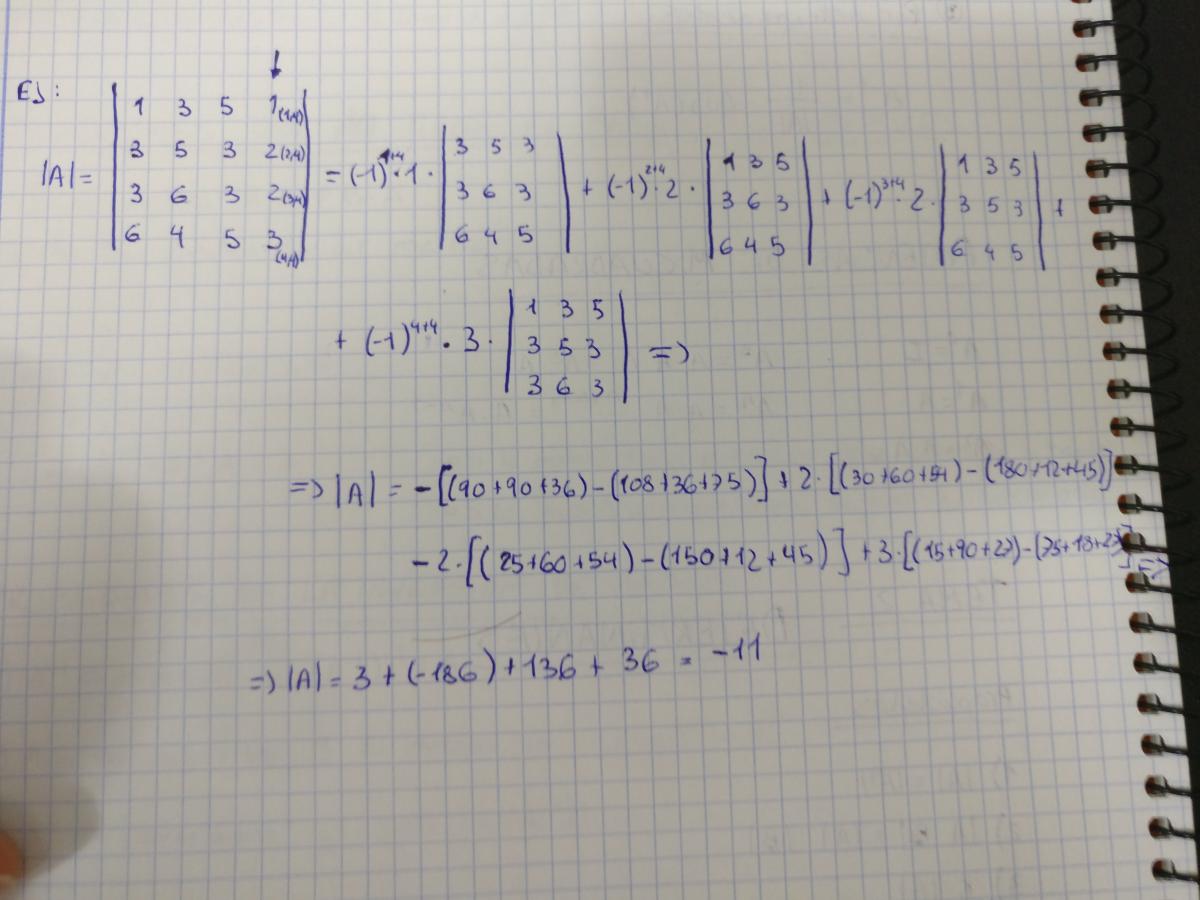 EJ:
|A| = | 1 3 5 1(1,4) ; 3 5 3 2(2,4) ; 3 6 3 2(3,4) ; 6 4 5 3(4,4) | = (-1)^1+4 · 1 · | 3 5 3 ; 3 6 3 ; 6 4 5 | + (-1)^2+4 · 2 · | 1 3 5 ; 3 6 3 ; 6 4 5 | + (-1)^3+4 · 2 · | 1 3 5 ; 3 5 3 ; 6 4 5 | +
+ (-1)^4+4 · 3 · | 1 3 5 ; 3 5 3 ; 3 6 3 | =>
=> |A| = -[(90+90+36)-(108+36+75)] + 2·[(30+60+54)-(180+12+45)]
-2·[(25+60+54)-(150+12+45)] + 3·[(15+90+27)-(75+18+27)] =>
=> |A| = 3 + (-186) + 136 + 36 = -11